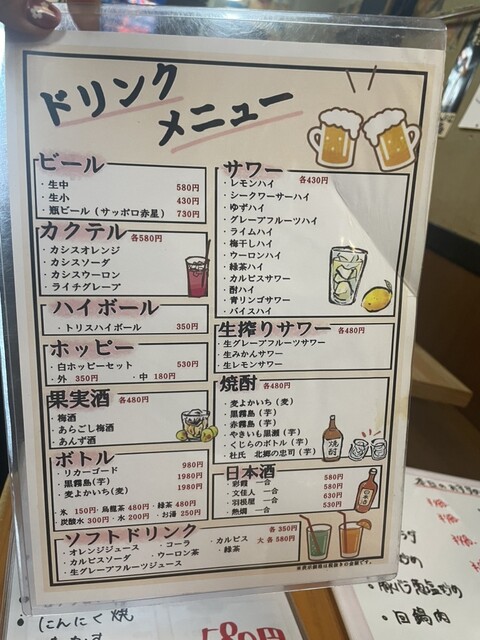 ドリンク
メニュー
ビール
・生中 580円
・生小 430円
・瓶ビール（サッポロ赤星） 730円
カクテル 各580円
・カシスオレンジ
・カシスソーダ
・カシスウーロン
・ライチグレープ
ハイボール
・トリスハイボール 350円
ホッピー
・白ホッピーセット 530円
・外 350円 ・中 180円
果実酒 各480円
・梅酒
・あらごし梅酒
・あんず酒
ボトル
・リカーゴード 980円
・黒霧島(芋) 1980円
・麦よかいち(麦) 1980円
氷 150円・烏龍茶 480円・緑茶 480円
炭酸水 300円・水 200円・お湯 250円
サワー 各430円
・レモンハイ
・シークワーサーハイ
・ゆずハイ
・グレープフルーツハイ
・ライムハイ
・梅干しハイ
・ウーロンハイ
・緑茶ハイ
・カルピスサワー
・酎ハイ
・青リンゴサワー
・バイスハイ
生搾りサワー 各480円
・生グレープフルーツサワー
・生みかんサワー
・生レモンサワー
焼酎 各480円
・麦よかいち(麦)
・黒霧島(芋)
・赤霧島(芋)
・やきいも黒瀬(芋)
・くじらのボトル(芋)
・杜氏 北郷の忠司(芋)
焼酎
日本酒
・彩霞 一合 580円
・文佳人 一合 580円
・羽根屋 一合 630円
・熱燗 一合 530円
日本酒
ソフトドリンク 各350円
・オレンジジュース ・コーラ ・カルピス 大各580円
・カルピスソーダ ・ウーロン茶 ・緑茶
・生グレープフルーツジュース
にんにく焼
580円
・回鍋肉